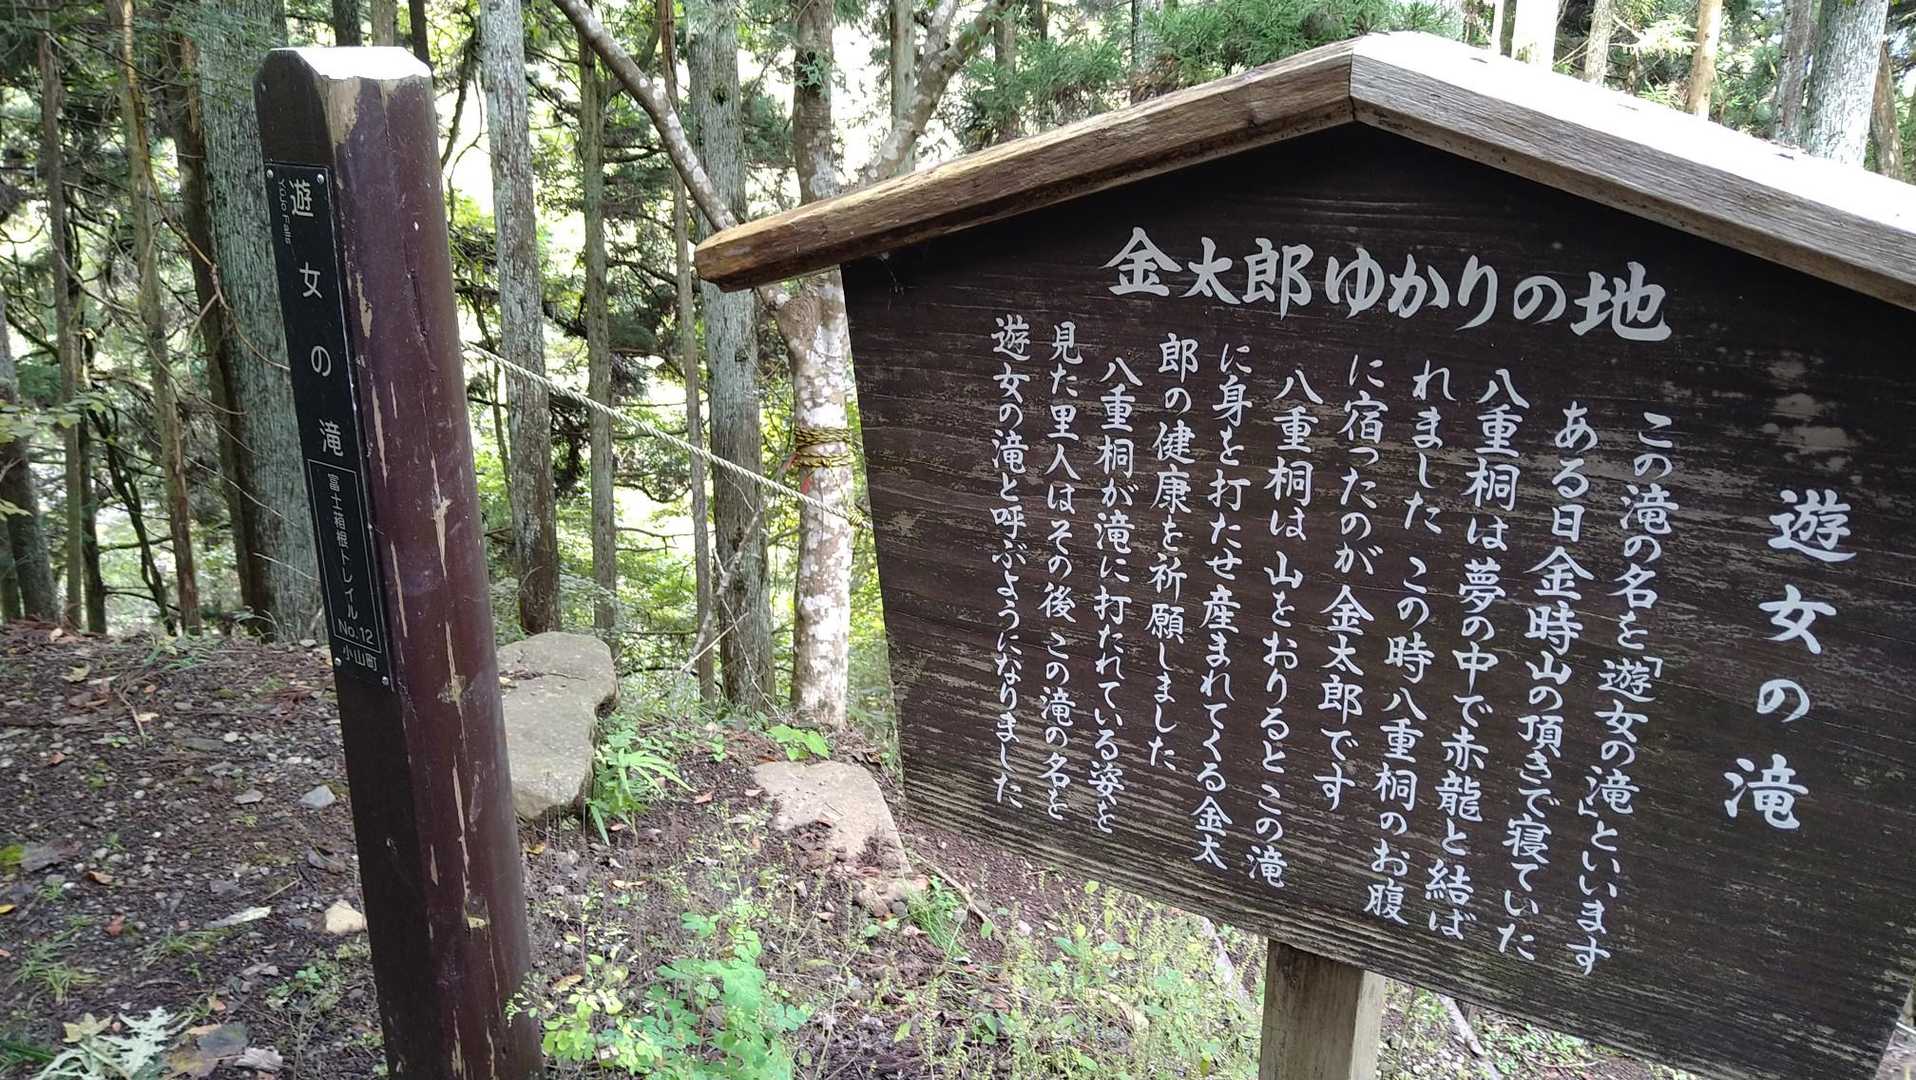 遊女の滝
YŪJO Falls
富士箱根トレイル
No.12
小山町
金太郎ゆかりの地
遊女の滝
この滝の名を「遊女の滝」といいます
ある日金時山の頂きで寝ていた
八重桐は夢の中で赤龍と結ば
れました この時八重桐のお腹
に宿ったのが 金太郎です
八重桐は 山をおりると この滝
に身を打たせ産まれてくる金太
郎の健康を祈願しました
八重桐が滝に打たれている姿を
見た里人はその後 この滝の名を
遊女の滝と呼ぶようになりました